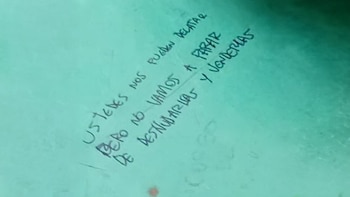 USTEDES NOS PUEDEN DELATAR
PERO NO VAMOS A PARAR
DE DESNUDARLAS Y VENDERLAS